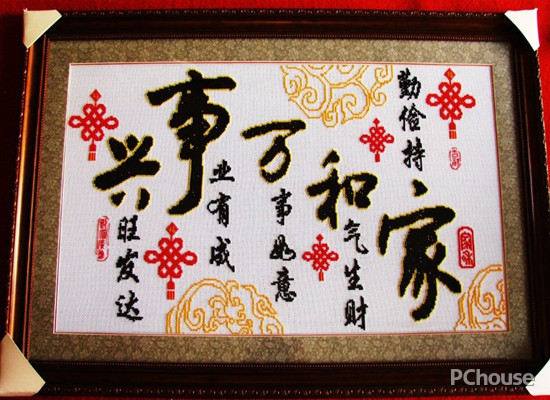 勤俭持家
和气生财
万事如意
事业有成
兴旺发达
PChouse